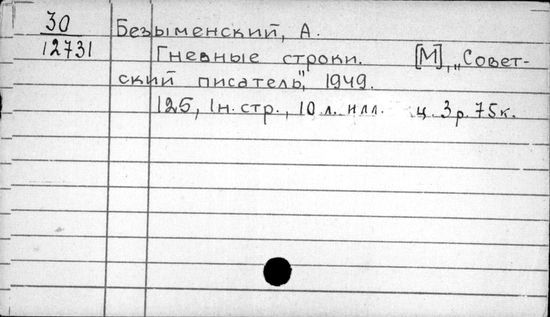 30
12731
Безыменский, А.
Гневные строки. [М], „Совет-
ский писатель", 1949.
125, 1н. стр., 10 л. илл. ц. 3р. 75к.